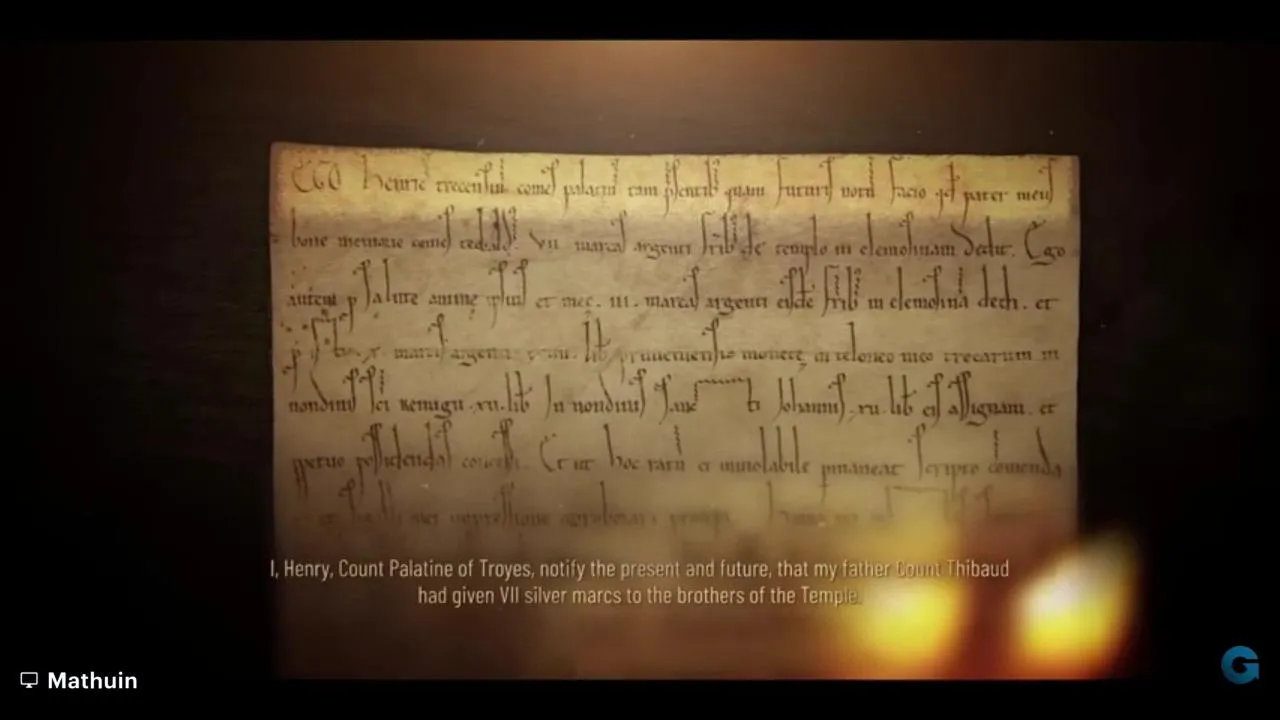 EGO Henric trecensiu comes palatin tam psentib quam futuris notu facio qd pater meus
bone memorie comes . VII marcas argenti frib de templo in elemosinam dedit. Ego
autem p salute anime ipsius et mee . III . marcas argenti eisde frib in elemosina dedi . et
marcas lib pruuiniensis monete in teloneo meo trecarum in
nondinis sci Remigii .xv. lib In nondinis Iohannis .xv. lib eis assignaui . et
ppetuo possidendas concessi . Et ut hoc ratu et inuiolabile pmaneat scripto comenda
I, Henry, Count Palatine of Troyes, notify the present and future, that my father Count Thibaud
had given VII silver marcs to the brothers of the Temple.
Mathuin
G